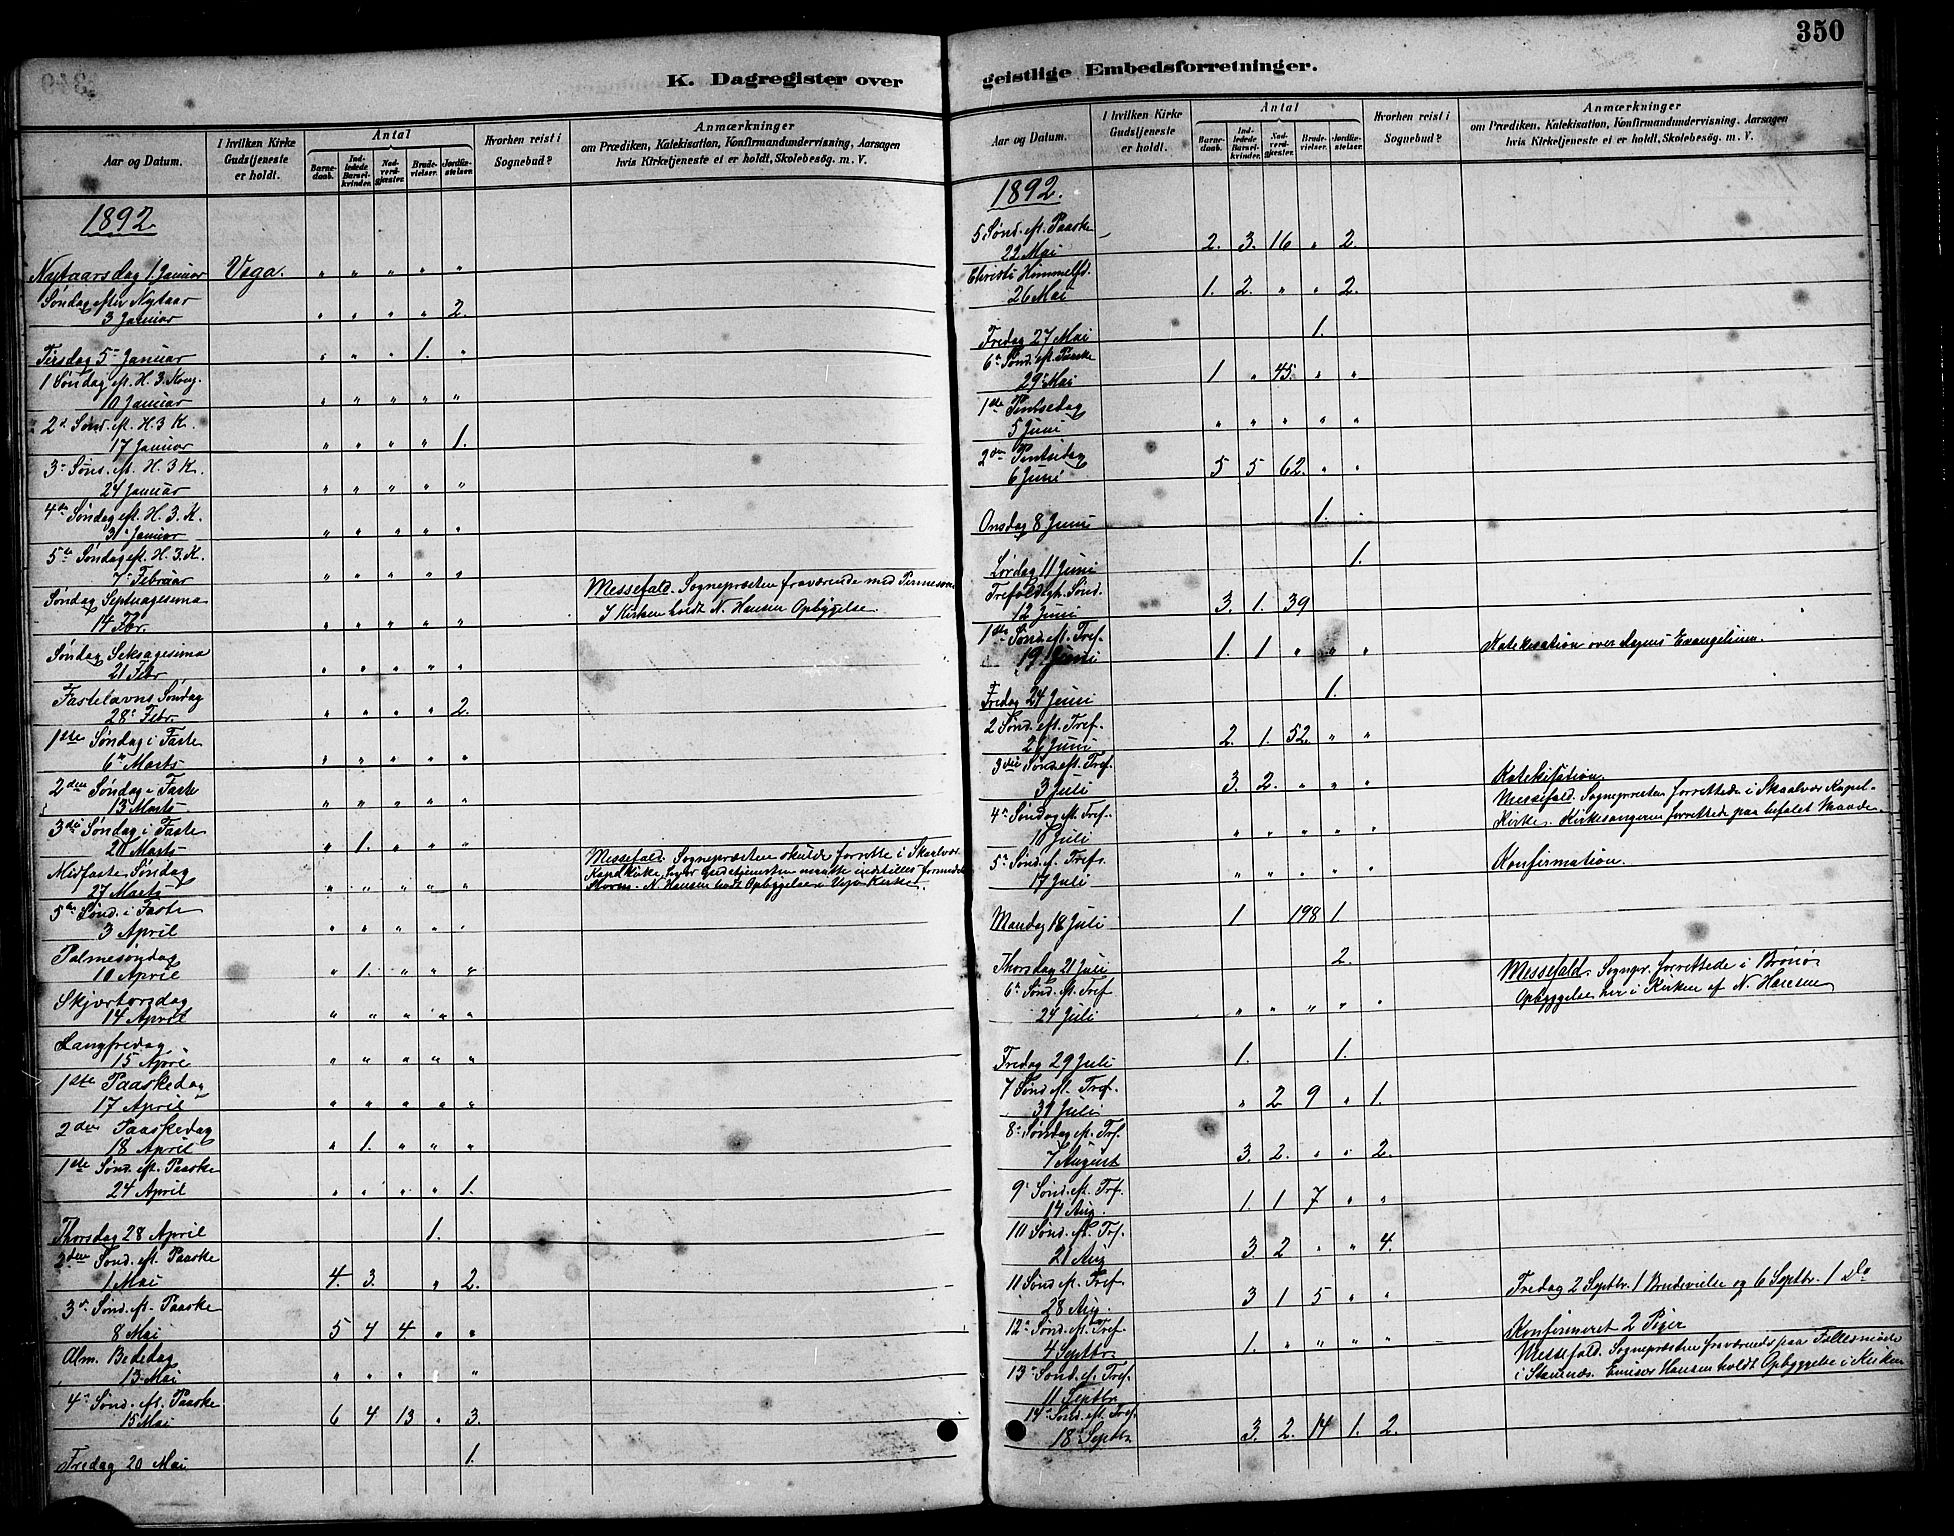 350
K. Dagregister over
Aar og Datum.
I hvilken Kirke Gudstjeneste er holdt.
Antal
Barnedaab.
Indledede Barselkvinder.
Nadverdgjester.
Brudevielser.
Jordfæstelser.
Hvorhen reist i Sognebud?
Anmærkninger
om Prædiken, Katekisation, Konfirmandundervisning, Aarsagen
hvis Kirketjeneste ei er holdt, Skolebesøg. m. V.
1892.
Nytaarsdag 1 Januar Vega. " " " " "
Søndag efter Nytaar
3 Januar " " " " 2.
Tirsdag 5te Januar " " " 1. "
1 Søndag eft. H. 3. Kong.
10 Januar " " " " "
2d Sønd. eft. H. 3 K.
17 Januar " " " " 1.
3die Sønd. eft. H. 3 K.
24 Januar " " " " "
4de Søndag eft. H. 3. K.
31 Januar " " " " "
5te Søndag eft. H. 3. K.
7 Februar " " " " "
Søndag Septuagesima
14 Fbr. " " " " "
Messefald. Sognepræsten fraværende med
I Kirken holdt N. Hansen Opbyggelse
Søndag Seksagesima
21 Febr " " " " "
Fastelavns Søndag
28 Febr. " " " " 2.
1ste Søndag i Faste
6 Marts " " " " "
2den Søndag i Faste
13 Marts " " " " "
3die Søndag i Faste
20 Marts " 1. " " "
Midfaste Søndag
27 Marts " " " " "
Messefald. Sognepræsten skulde forrette i Skaalvær
Kapelkirke, hvor Gudstjenesten maatte indstilles formedelst
Storm. N. Hansen holdt Opbyggelse i Vega Kirke.
5te Sønd. i Faste
3 April " " " " "
Palmesøndag
10 April " 1. " " "
Skjærtorsdag
14 April " " " " "
Langfredag
15 April " " " " "
1ste Paaskedag
17 April " " " " "
2den Paaskedag
18 April " 1. " " "
1ste Sønd. eft. Paaske
24 April " " " " 1.
Thorsdag 28 April 1.
2den Sønd. eft. Paaske
1 Mai 4. 3. " 2.
3die Sønd. eft. Paaske
8 Mai 5 4 4 " "
Alm. Bededag
13 Mai " " " "
4de Sønd. eft. Paaske
15 Mai 6 4 13 " 3.
Fredag 20 Mai 1.
geistlige Embedsforretninger.
Aar og Datum.
I hvilken Kirke Gudstjeneste er holdt.
Antal
Barnedaab.
Indledede Barselkvinder.
Nadverdgjester.
Brudevielser.
Jordfæstelser.
Hvorhen reist i Sognebud?
Anmærkninger
om Prædiken, Katekisation, Konfirmandundervisning, Aarsagen
hvis Kirketjeneste ei er holdt, Skolebesøg. m. V.
1892.
5 Sønd. eft. Paaske
22 Mai 2. 3. 16 " 2.
Christi Himmelfd.
26 Mai 1. 2. " " 2.
Fredag 27 Mai 1.
6te Sønd. eft. Paaske
29 Mai 1 " 45. " "
1ste Pintsedag
5 Juni " " " " "
2den Pintsedag
6 Juni 5 5 62. " "
Onsdag 8 Juni 1.
Lørdag 11 Juni 1.
Trefoldigh. Sønd.
12 Juni 3. 1. 39
1ste Sønd. eft. Tref.
19 Juni 1. 1 " " " Katekisation over Dagens Evangelium.
Fredag 24 Juni 1.
2 Sønd. eft. Tref.
26 Juni 2. 1. 52. " "
3die Sønd. eft. Tref.
3 Juli 3. 2. " " " Katekisation.
4de Søndag eft. Tref.
10 Juli " " " " "
Messefald. Sognepræsten forrettede i Skaalvær Kapel-
kirke. Kirkesangeren forrettede paa befalet Maade
5te Sønd. eft. Tref.
17 Juli " " " " " Konfirmation.
Mandag 18 Juli 1 198 1
Thorsdag 21 Juli 2.
6te Sønd. eft. Tref
24 Juli " " " " "
Messefald. Sognepr. forrettede i Brønø
Opbyggelse her i Kirken af N. Hansen
Fredag 29 Juli 1. 1.
7 Sønd eft. Tref.
31 Juli " 2 9 " 1.
8de Søndag eft. Trf.
7 August 3. 2. " " 2.
9de Sønd. eft. Trf.
14 Aug. 1. 1 7 " "
10 Sønd. eft. Trf.
21 Aug 3. 2 " " 4.
11 Sønd eft. Tref.
28 Aug. 3 1 5 " "
Fredag 2 Septbr. 1 Brudevielse og 6 Septbr. 1 do
12te Sønd. eft. Tref.
4 Septbr. 1. " " " " Konfirmeret 2 Piger
13de Sønd. eft. Tref.
11 Septbr
Messefald. Sognepræsten fraværende paa Fællesmøde
i Stamnes. Emisær Hansen holdt Opbyggelse i Kirken
14de Sønd. eft. Tref.
18 Septbr. 3. 2. 14 1. 2.